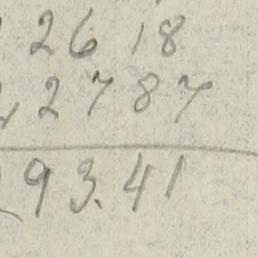 26 18
2787
93.41